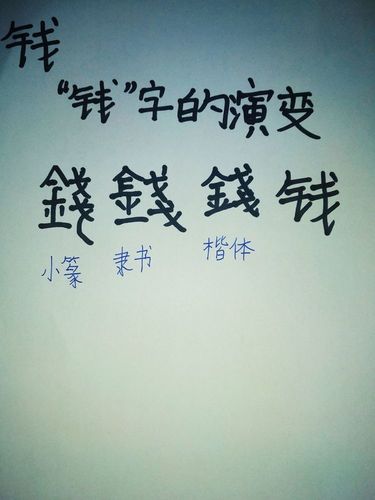 钱
“钱”字的演变
錢 錢 錢 钱
小篆 隶书 楷体